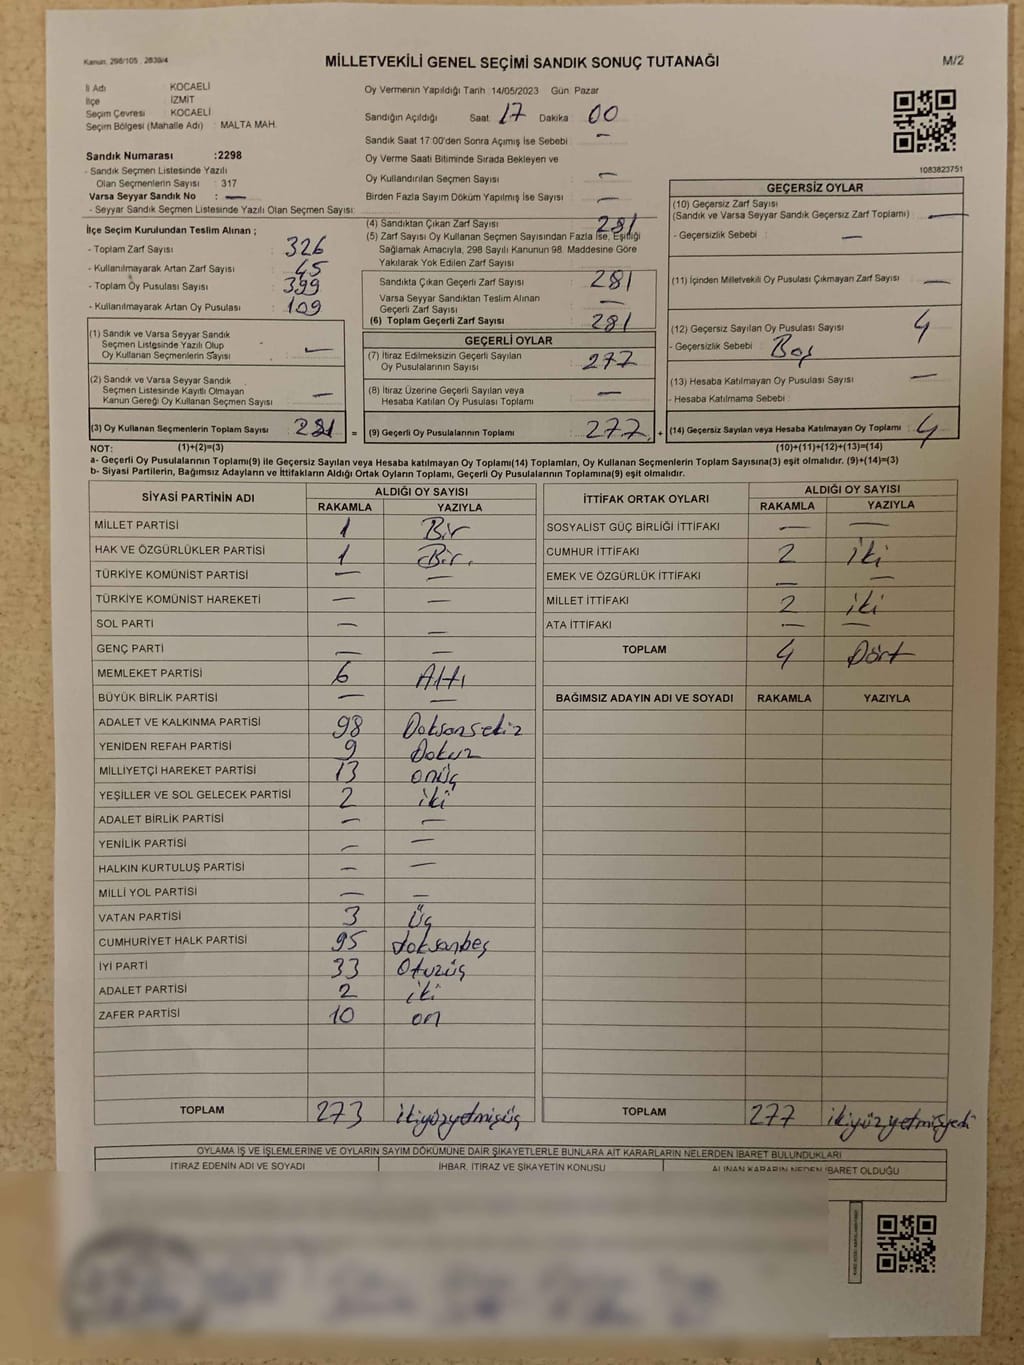 Kanun, 298/105 , 2839/4
MİLLETVEKİLİ GENEL SEÇİMİ SANDIK SONUÇ TUTANAĞI
M/2
İl Adı KOCAELİ
İlçe İZMİT
Seçim Çevresi KOCAELİ
Seçim Bölgesi (Mahalle Adı) : MALTA MAH.
Sandık Numarası :2298
- Sandık Seçmen Listesinde Yazılı
Olan Seçmenlerin Sayısı : 317
Varsa Seyyar Sandık No : —
- Seyyar Sandık Seçmen Listesinde Yazılı Olan Seçmen Sayısı:
İlçe Seçim Kurulundan Teslim Alınan ;
- Toplam Zarf Sayısı : 326
- Kullanılmayarak Artan Zarf Sayısı : 45
- Toplam Oy Pusulası Sayısı : 399
- Kullanılmayarak Artan Oy Pusulası : 109
(1) Sandık ve Varsa Seyyar Sandık
Seçmen Listesinde Yazılı Olup
Oy Kullanan Seçmenlerin Sayısı : —
(2) Sandık ve Varsa Seyyar Sandık
Seçmen Listesinde Kayıtlı Olmayan
Kanun Gereği Oy Kullanan Seçmen Sayısı : —
(3) Oy Kullanan Seçmenlerin Toplam Sayısı : 281 =
(1)+(2)=(3)
Oy Vermenin Yapıldığı Tarih 14/05/2023 Gün: Pazar
Sandığın Açıldığı Saat 17 Dakika 00
Sandık Saat 17:00'den Sonra Açımış İse Sebebi : —
Oy Verme Saati Bitiminde Sırada Bekleyen ve
Oy Kullandırılan Seçmen Sayısı : —
Birden Fazla Sayım Döküm Yapılmış İse Sayısı : —
(4) Sandıktan Çıkan Zarf Sayısı : 281
(5) Zarf Sayısı Oy Kullanan Seçmen Sayısından Fazla İse, Eşitliği
Sağlamak Amacıyla, 298 Sayılı Kanunun 98. Maddesine Göre
Yakılarak Yok Edilen Zarf Sayısı
Sandıkta Çıkan Geçerli Zarf Sayısı : 281
Varsa Seyyar Sandıktan Teslim Alınan
Geçerli Zarf Sayısı : —
(6) Toplam Geçerli Zarf Sayısı : 281
GEÇERLİ OYLAR
(7) İtiraz Edilmeksizin Geçerli Sayılan
Oy Pusulalarının Sayısı : 277
(8) İtiraz Üzerine Geçerli Sayılan veya
Hesaba Katılan Oy Pusulası Toplamı : —
(9) Geçerli Oy Pusulalarının Toplamı : 277 +
1083823751
GEÇERSİZ OYLAR
(10) Geçersiz Zarf Sayısı
(Sandık ve Varsa Seyyar Sandık Geçersiz Zarf Toplamı) : —
- Geçersizlik Sebebi : —
(11) İçinden Milletvekili Oy Pusulası Çıkmayan Zarf Sayısı : —
(12) Geçersiz Sayılan Oy Pusulası Sayısı : 4
- Geçersizlik Sebebi : Boş
(13) Hesaba Katılmayan Oy Pusulası Sayısı : —
- Hesaba Katılmama Sebebi :
(14) Geçersiz Sayılan veya Hesaba Katılmayan Oy Toplamı : 4
(10)+(11)+(12)+(13)=(14)
NOT:
a- Geçerli Oy Pusulalarının Toplamı(9) ile Geçersiz Sayılan veya Hesaba katılmayan Oy Toplamı(14) Toplamları, Oy Kullanan Seçmenlerin Toplam Sayısına(3) eşit olmalıdır. (9)+(14)=(3)
b- Siyasi Partilerin, Bağımsız Adayların ve İttifakların Aldığı Ortak Oyların Toplamı, Geçerli Oy Pusulalarının Toplamına(9) eşit olmalıdır.
SİYASİ PARTİNİN ADI ALDIĞI OY SAYISI
RAKAMLA YAZIYLA
MİLLET PARTİSİ 1 Bir
HAK VE ÖZGÜRLÜKLER PARTİSİ 1 Bir.
TÜRKİYE KOMÜNİST PARTİSİ — —
TÜRKİYE KOMÜNİST HAREKETİ — —
SOL PARTİ — —
GENÇ PARTİ — —
MEMLEKET PARTİSİ 6 Altı
BÜYÜK BİRLİK PARTİSİ — —
ADALET VE KALKINMA PARTİSİ 98 Doksansekiz
YENİDEN REFAH PARTİSİ 9 Dokuz
MİLLİYETÇİ HAREKET PARTİSİ 13 onüç
YEŞİLLER VE SOL GELECEK PARTİSİ 2 iki
ADALET BİRLİK PARTİSİ — —
YENİLİK PARTİSİ — —
HALKIN KURTULUŞ PARTİSİ — —
MİLLİ YOL PARTİSİ — —
VATAN PARTİSİ 3 Üç
CUMHURİYET HALK PARTİSİ 95 doksanbeş
İYİ PARTİ 33 Otuzüç
ADALET PARTİSİ 2 iki
ZAFER PARTİSİ 10 on
TOPLAM 273 ikiyüzyetmişüç
İTTİFAK ORTAK OYLARI ALDIĞI OY SAYISI
RAKAMLA YAZIYLA
SOSYALİST GÜÇ BİRLİĞİ İTTİFAKI — —
CUMHUR İTTİFAKI 2 iki
EMEK VE ÖZGÜRLÜK İTTİFAKI — —
MİLLET İTTİFAKI 2 iki
ATA İTTİFAKI — —
TOPLAM 4 Dört
BAĞIMSIZ ADAYIN ADI VE SOYADI RAKAMLA YAZIYLA
TOPLAM 277 ikiyüzyetmişyedi
OYLAMA İŞ VE İŞLEMLERİNE VE OYLARIN SAYIM DÖKÜMÜNE DAİR ŞİKAYETLERLE BUNLARA AİT KARARLARIN NELERDEN İBARET BULUNDUKLARI
İTİRAZ EDENİN ADI VE SOYADI İHBAR, İTİRAZ VE ŞİKAYETİN KONUSU ALINAN KARARIN NEDEN İBARET OLDUĞU